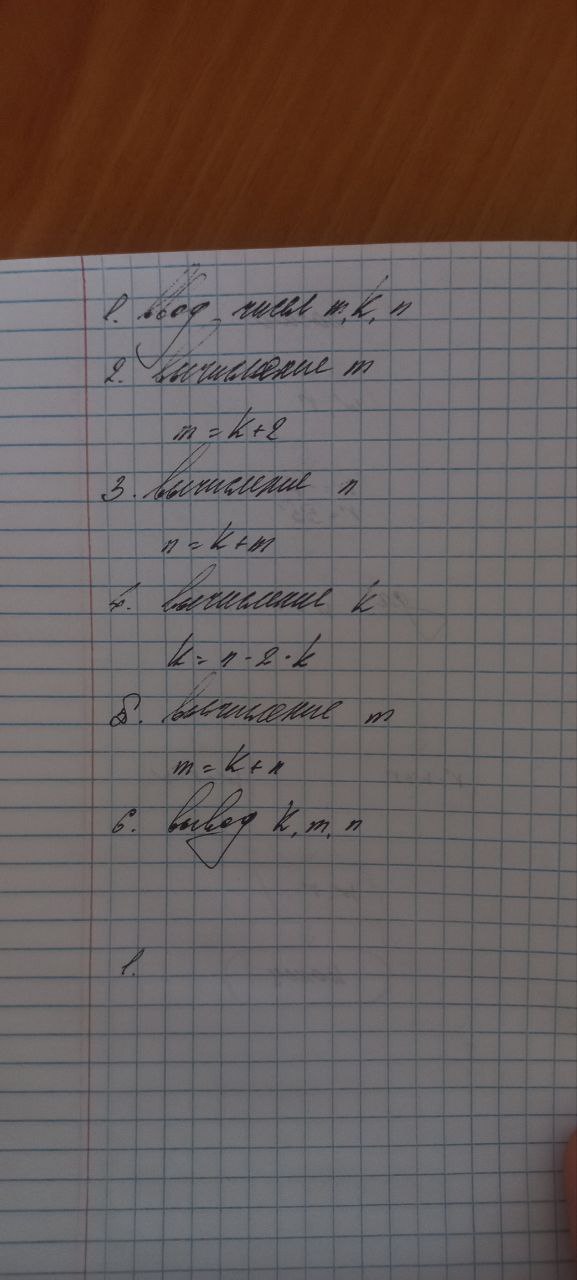 1. Ввод чисел m, k, n
2. Вычисление m
m = k + 2
3. Вычисление n
n = k + m
4. Вычисление k
k = n - 2 · k
5. Вычисление m
m = k + n
6. Вывод k, m, n
1.